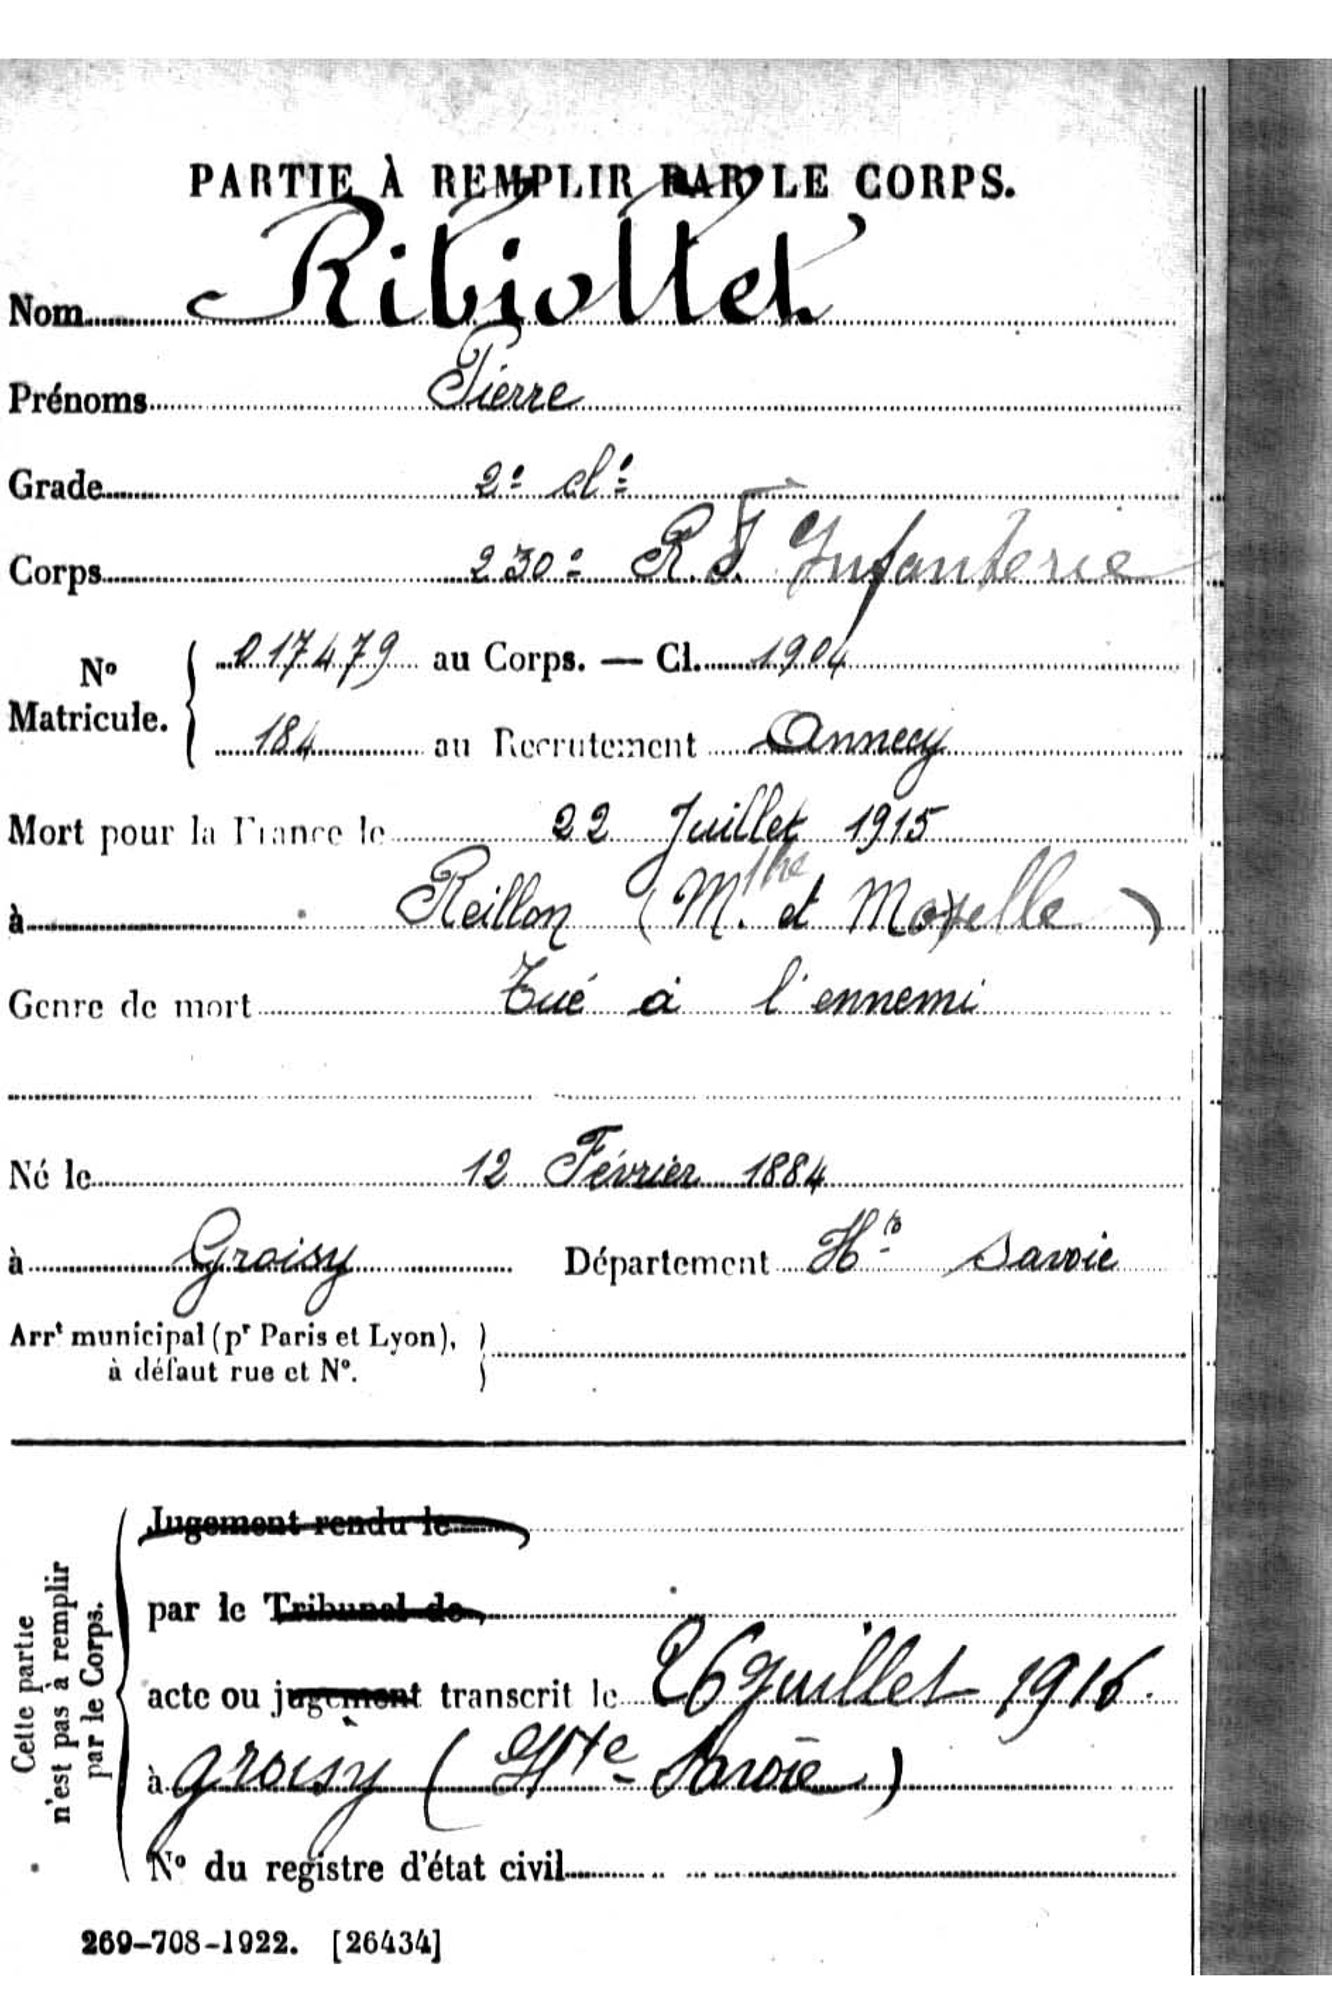 PARTIE À REMPLIR PAR LE CORPS.
Nom Ribiollet
Prénoms Pierre
Grade 2e cle
Corps 230e R. I. Infanterie
No Matricule. { 017479 au Corps. — Cl. 1904
184 au Recrutement Annecy
Mort pour la France le 22 Juillet 1915
à Reillon (Mthe et Moselle)
Genre de mort Tué à l'ennemi
Né le 12 Février 1884
à Groisy Département Hte Savoie
Arrt municipal (pr Paris et Lyon), }
à défaut rue et No.
Cette partie
n'est pas à remplir
par le Corps.
Jugement rendu le
par le Tribunal de
acte ou jugement transcrit le 26 Juillet 1916
à Groisy (Hte Savoie)
No du registre d'état civil
269-708-1922. [26434]